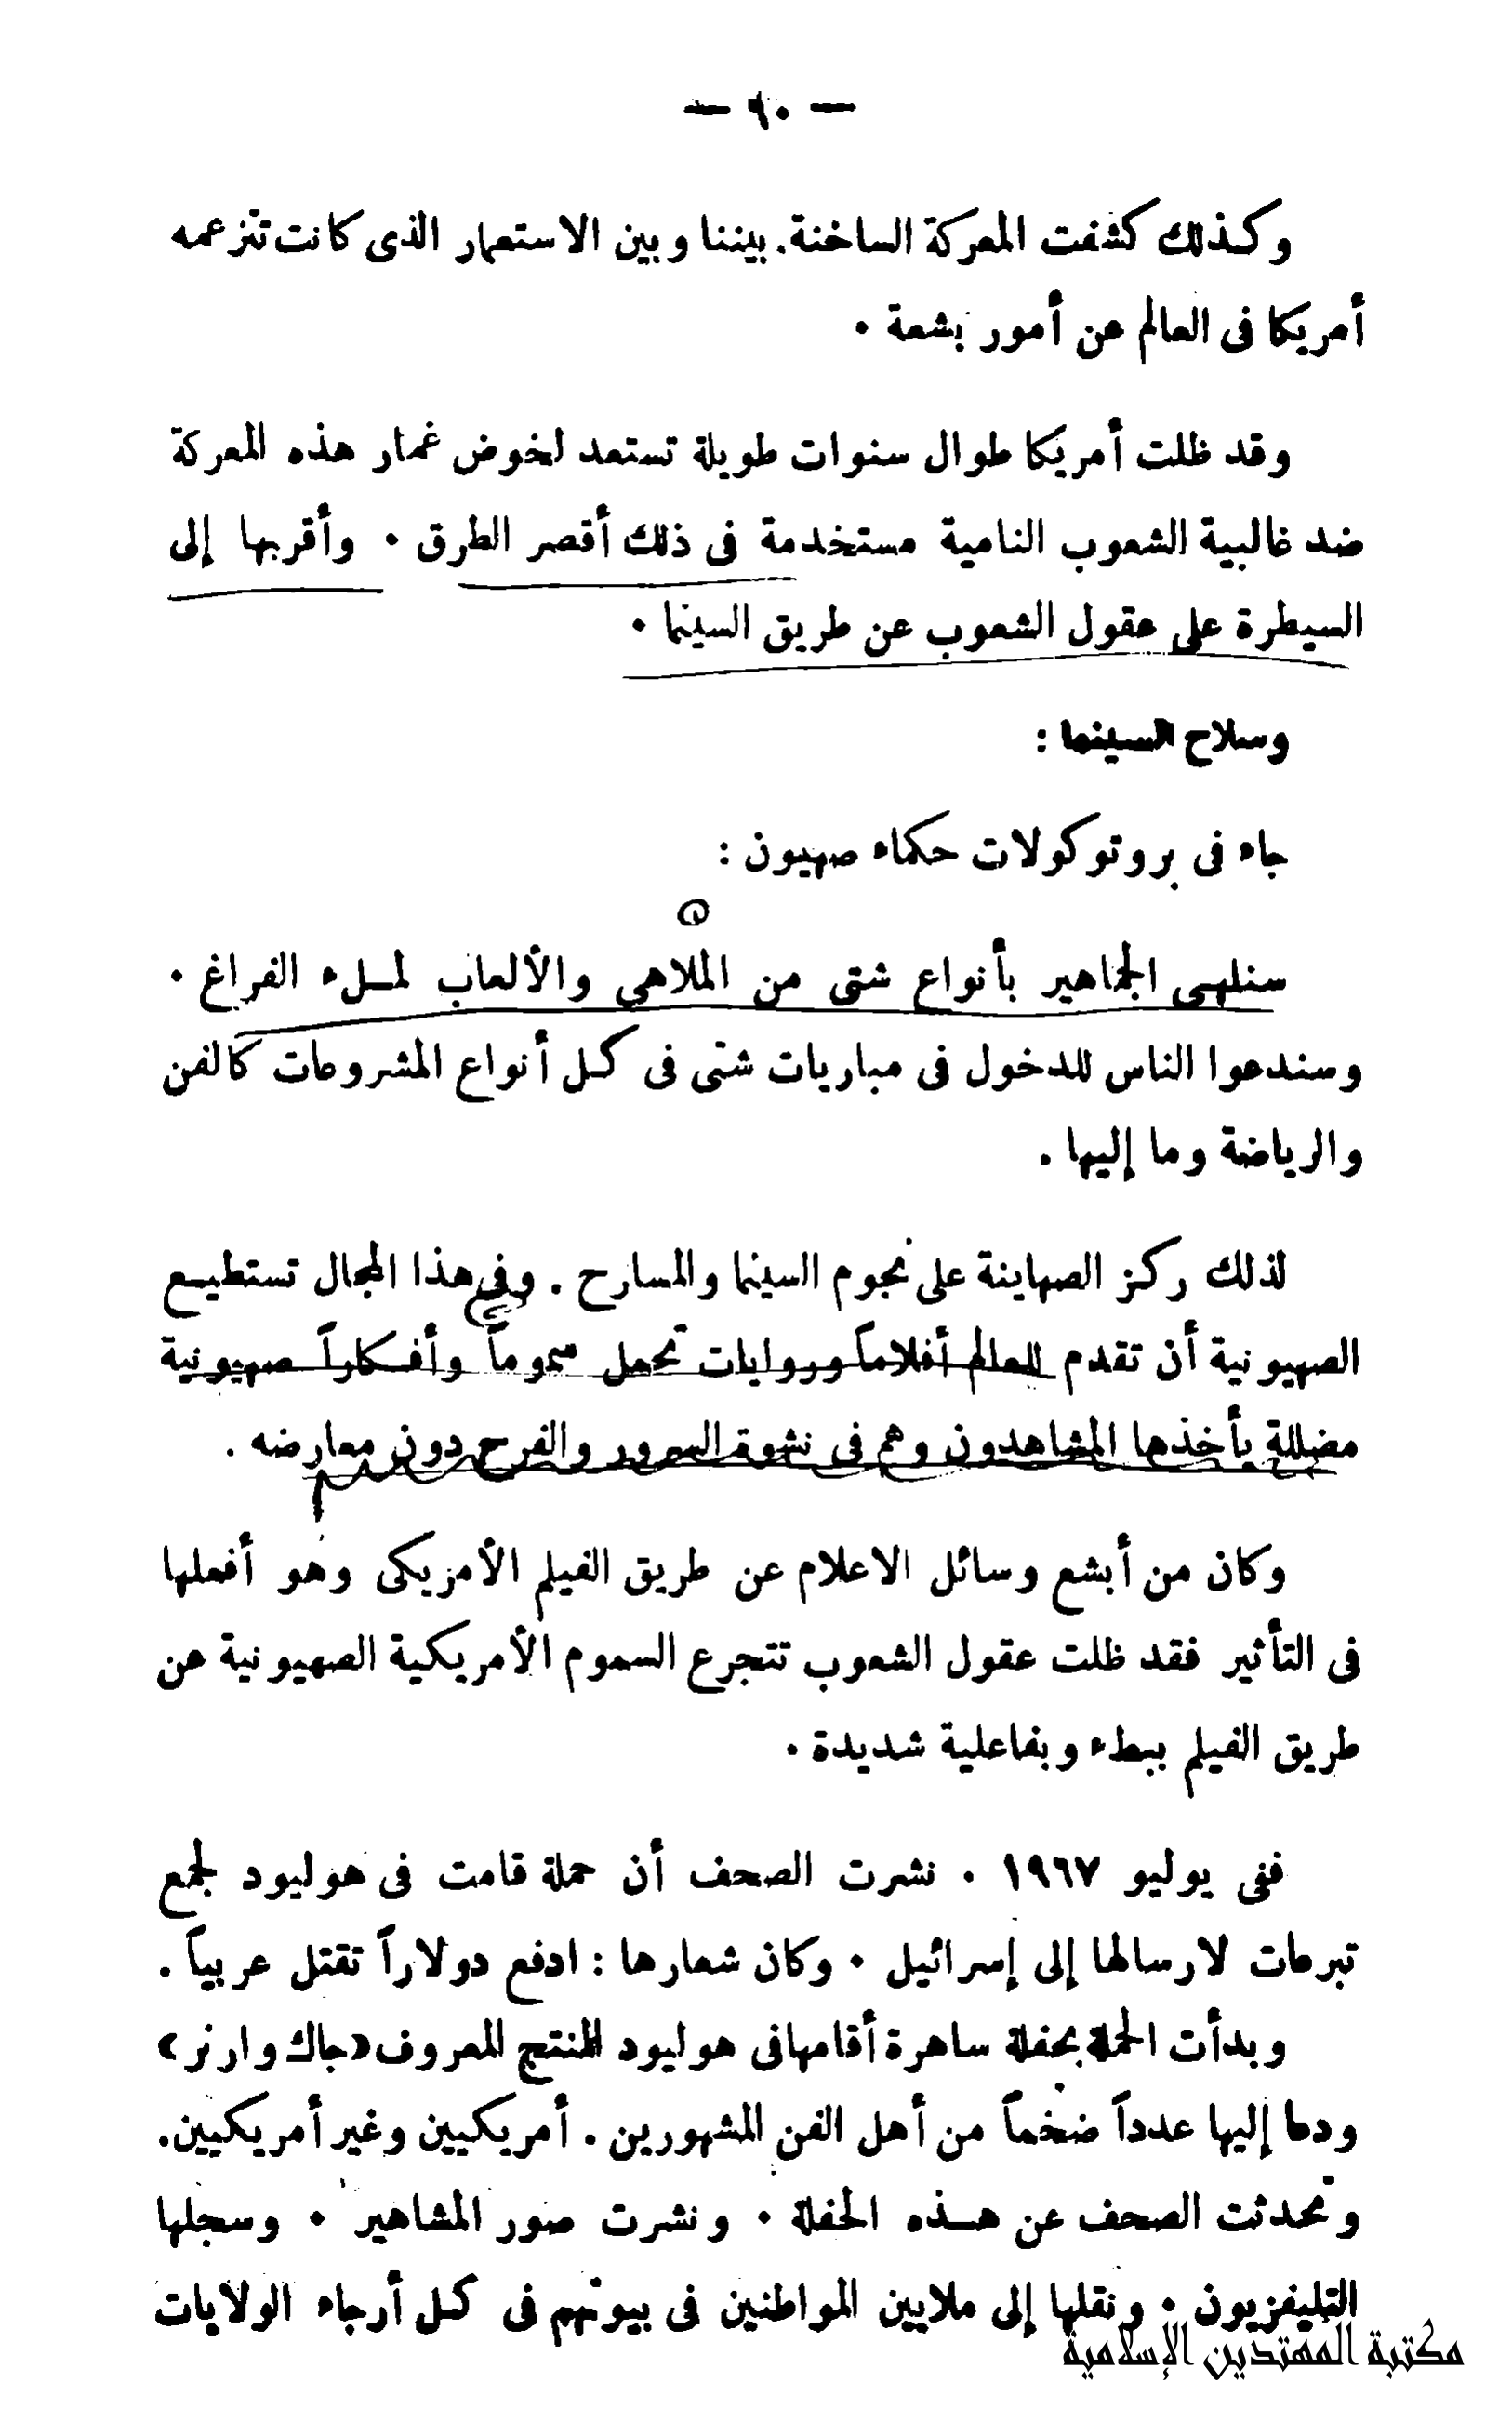 — ٦٠ —
وكذلك كشفت المعركة الساخنة. بيننا وبين الاستعمار الذى كانت تتزعمه
أمريكا فى العالم عن أمور بشعة .
وقد ظلت أمريكا طوال سنوات طويلة تستعد لخوض غمار هذه المعركة
ضد غالبية الشعوب النامية مستخدمة فى ذلك أقصر الطرق . وأقربها إلى
السيطرة على عقول الشعوب عن طريق السينما .
وسلاح السينما :
جاء فى بروتوكولات حكماء صهيون :
سنلهى الجماهير بأنواع شتى من الملاهى والألعاب لمـلء الفراغ .
وسندعوا الناس للدخول فى مباريات شتى فى كـل أنواع المشروعات كالفن
والرياضة وما إليها .
لذلك ركز الصهاينة على نجوم السينما والمسارح . وفى هذا المجال تستطيـع
الصهيونية أن تقدم للعالم أفلاماً وروايات تحمل سموماً وأفـكاراً صهيونية
مضللة يأخذها المشاهدون وهم فى نشوة السرور والفرح دون معارضه .
وكان من أبشع وسائل الاعلام عن طريق الفيلم الأمريكى وهو أفعلها
فى التأثير فقد ظلت عقول الشعوب تتجرع السموم الأمريكية الصهيونية عن
طريق الفيلم ببطء وبفاعلية شديدة .
ففى يوليو ١٩٦٧ . نشرت الصحف أن حملة قامت فى هوليود لجمع
تبرعات لارسالها إلى إسرائيل . وكان شعارها : ادفع دولاراً تقتل عربياً .
وبدأت الحملة بحفلة ساهرة أقامها فى هوليود المنتج المعروف «جاك وارنر»
ودعا إليها عدداً ضخماً من أهل الفن المشهورين . أمريكيين وغير أمريكيين.
وتحدثت الصحف عن هـذه الحفلة . ونشرت صور المشاهير . وسجلها
التليفزيون . ونقلها إلى ملايين المواطنين فى بيوتهم فى كـل أرجاء الولايات
مكتبة المهتدين الإسلامية